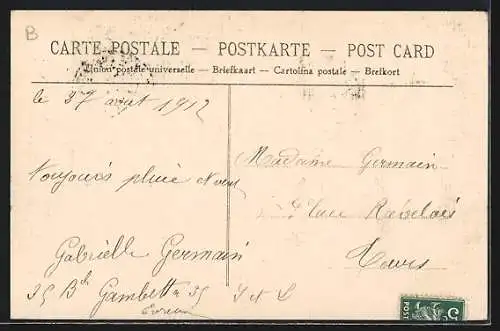 B
CARTE POSTALE — POSTKARTE — POST CARD
Union postale universelle — Briefkaart — Cartolina postale — Brefkort
le 27 aout 1912
Madame Germain
toujours pluie
place Rabelais
Gabrielle Germain
Tours
35 Bd Gambetta 35
I et L
5